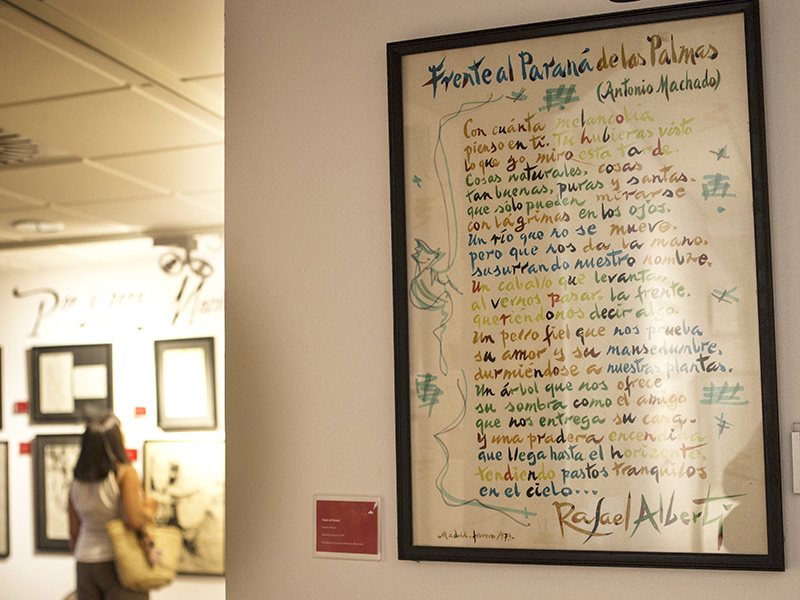 Frente al Paraná de las Palmas
(Antonio Machado)
Con cuánta melancolía
pienso en ti. Tú hubieras visto
lo que yo miro esta tarde.
Cosas naturales, cosas
tan buenas, puras y santas.
que sólo pueden mirarse
con lágrimas en los ojos.
Un río que no se mueve,
pero que nos da la mano,
susurrando nuestro nombre.
Un caballo que levanta,
al vernos pasar, la frente,
queriéndonos decir algo.
Un perro fiel que nos prueba
su amor y su mansedumbre,
durmiéndose a nuestras plantas.
Un árbol que nos ofrece
su sombra como el amigo
que nos entrega su casa.
y una pradera encendida
que llega hasta el horizonte,
tendiendo pastos tranquilos
en el cielo...
Rafael Alberti